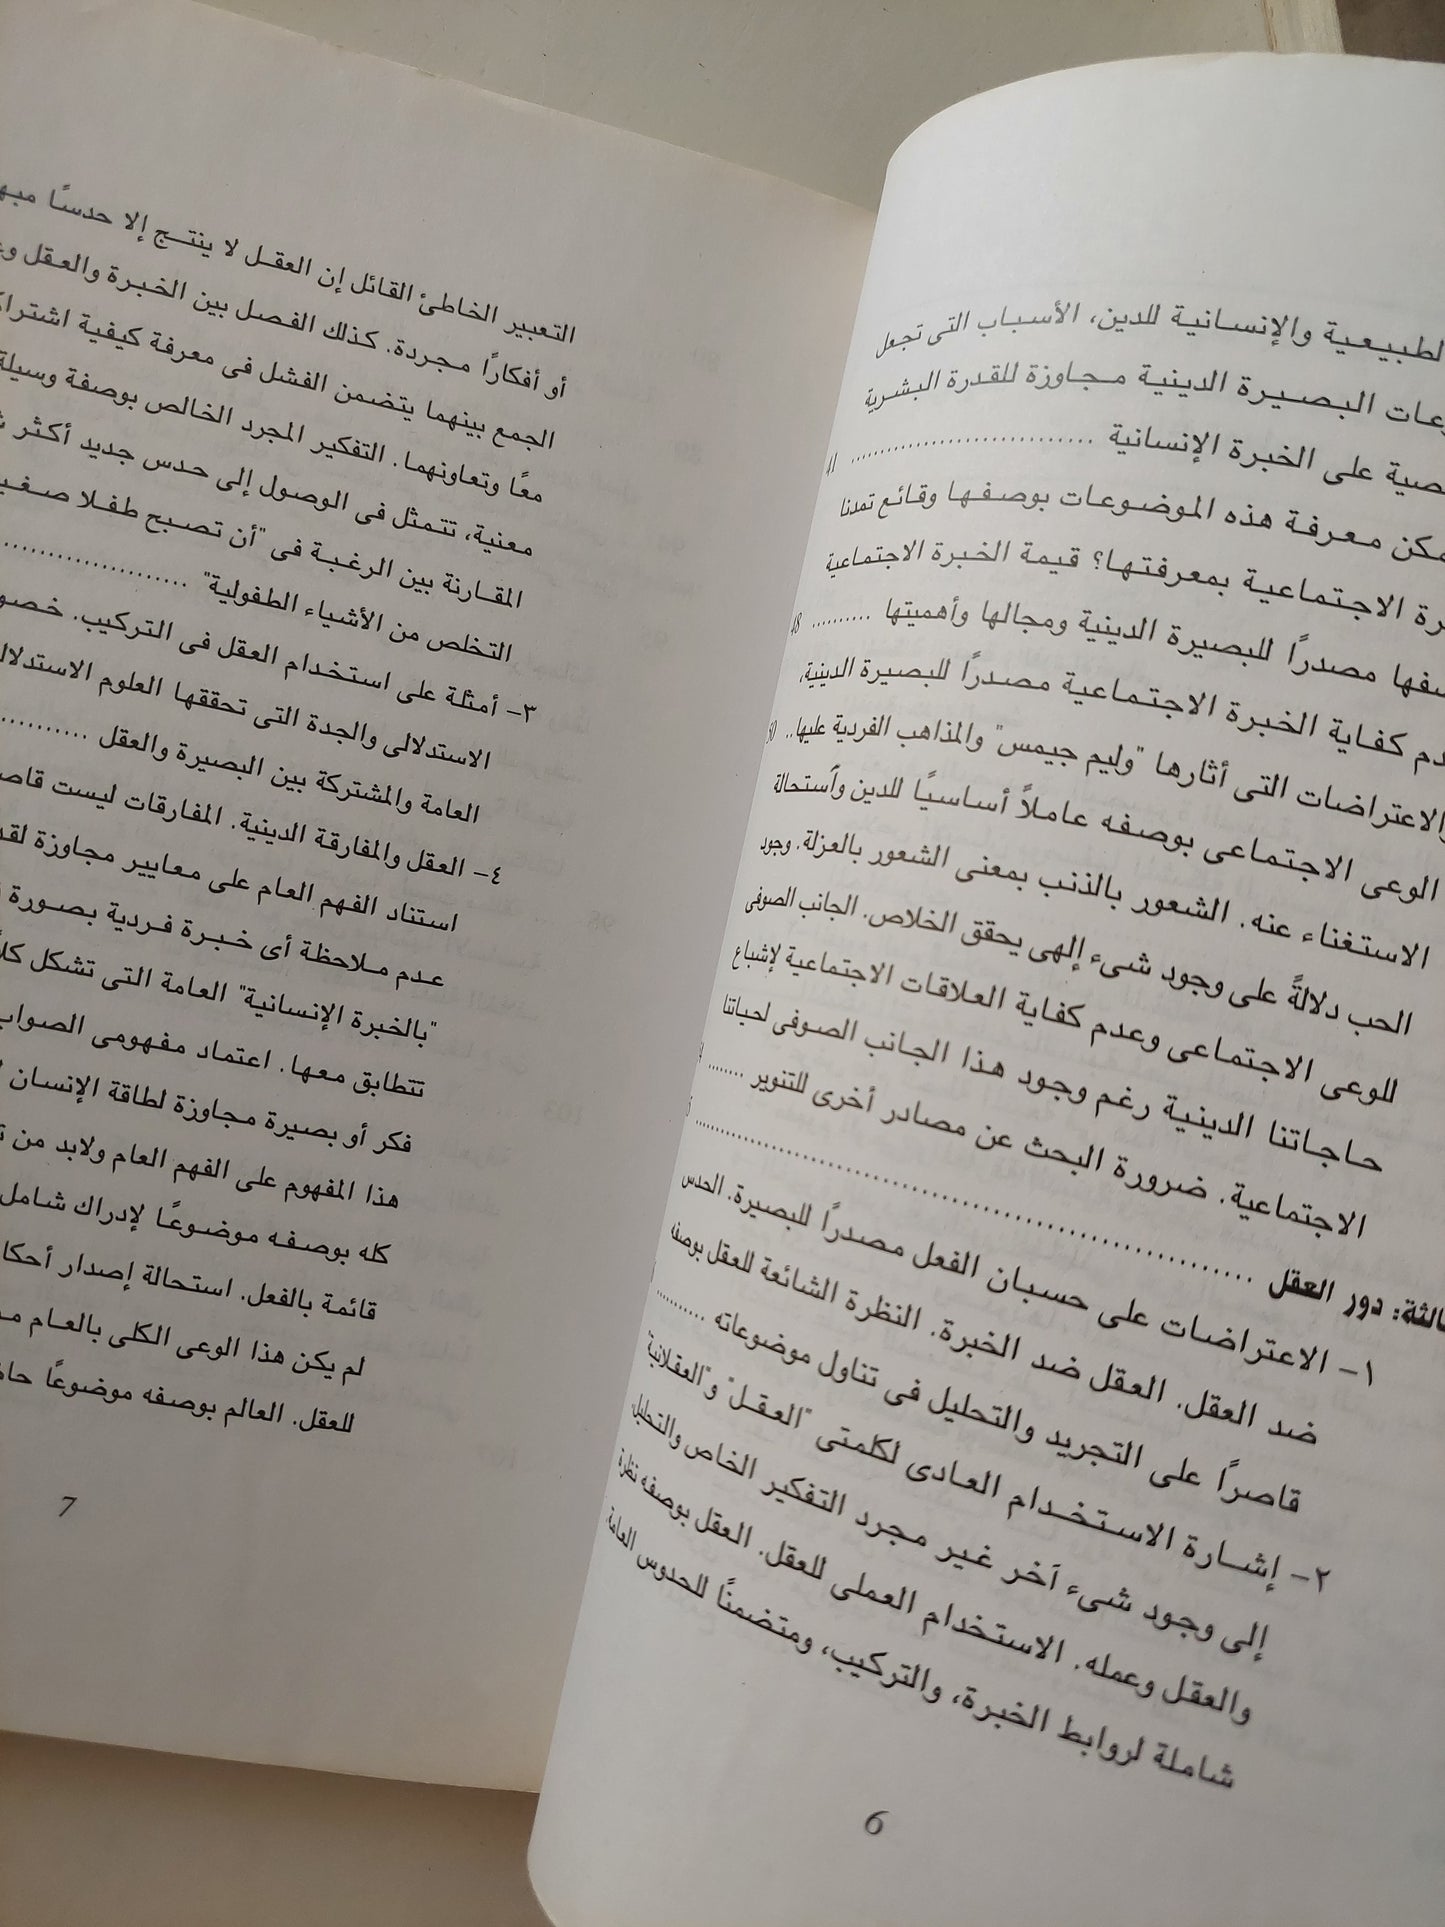 الطبيعية والإنسانية للدين، الأسباب التى تجعل
البصيرة الدينية مجاوزة للقدرة البشرية
على الخبرة الإنسانية .............................. 41
معرفة هذه الموضوعات بوصفها وقائع تمدنا
الاجتماعية بمعرفتها؟ قيمة الخبرة الاجتماعية
مصدرًا للبصيرة الدينية ومجالها وأهميتها .......... 48
كفاية الخبرة الاجتماعية مصدرًا للبصيرة الدينية،
والاعتراضات التى أثارها "وليم جيمس" والمذاهب الفردية عليها.. 50
الوعى الاجتماعى بوصفه عاملاً أساسيًا للدين وآستحالة
الاستغناء عنه. الشعور بالذنب بمعنى الشعور بالعزلة. وجود
الحب دلالةً على وجود شىء إلهى يحقق الخلاص. الجانب الصوفى
للوعى الاجتماعى وعدم كفاية العلاقات الاجتماعية لإشباع
حاجاتنا الدينية رغم وجود هذا الجانب الصوفى لحياتنا
الاجتماعية. ضرورة البحث عن مصادر أخرى للتنوير ........
دور العقل ..............................
١– الاعتراضات على حسبان الفعل مصدرًا للبصيرة. الحدس
ضد العقل. العقل ضد الخبرة. النظرة الشائعة للعقل بوصفه
قاصرًا على التجريد والتحليل فى تناول موضوعاته ..........
٢– إشارة الاستخدام العادى لكلمتى "العقل" و"العقلانية
إلى وجود شىء آخر غير مجرد التفكير الخاص والتحليل.
والعقل وعمله. الاستخدام العملى للعقل. العقل بوصفه نظرة
شاملة لروابط الخبرة، والتركيب، ومتضمنًا للحدوس العامة.
6
التعبير الخاطئ القائل إن العقل لا ينتج إلا حدسًا
أو أفكارًا مجردة. كذلك الفصل بين الخبرة والعقل
الجمع بينهما يتضمن الفشل فى معرفة كيفية
معًا وتعاونهما. التفكير المجرد الخالص بوصفة وسيلة
معنية، تتمثل فى الوصول إلى حدس جديد أكثر
المقارنة بين الرغبة فى "أن تصبح طفلا
التخلص من الأشياء الطفولية" ....................
٣– أمثلة على استخدام العقل فى التركيب.
الاستدلالى والجدة التى تحققها العلوم
العامة والمشتركة بين البصيرة والعقل ...........
٤– العقل والمفارقة الدينية. المفارقات ليست
استناد الفهم العام على معايير مجاوزة
عدم ملاحظة أى خبرة فردية بصورة
"بالخبرة الإنسانية" العامة التى تشكل
تتطابق معها. اعتماد مفهومى
فكر أو بصيرة مجاوزة لطاقة الإنسان
هذا المفهوم على الفهم العام ولابد من
كله بوصفه موضوعًا لإدراك شامل
قائمة بالفعل. استحالة إصدار
لم يكن هذا الوعى الكلى بالعام
للعقل. العالم بوصفه موضوعًا
7